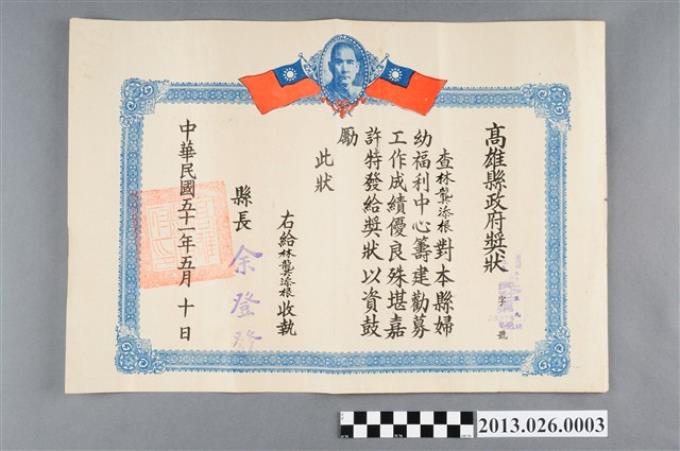 高雄縣政府獎狀
字 號
查林龔添根對本縣婦
幼福利中心籌建勸募
工作成績優良殊堪嘉
許特發給獎狀以資鼓
勵
此狀
右給林龔添根收執
縣長 余登發
中華民國五十一年五月十日
2013.026.0003